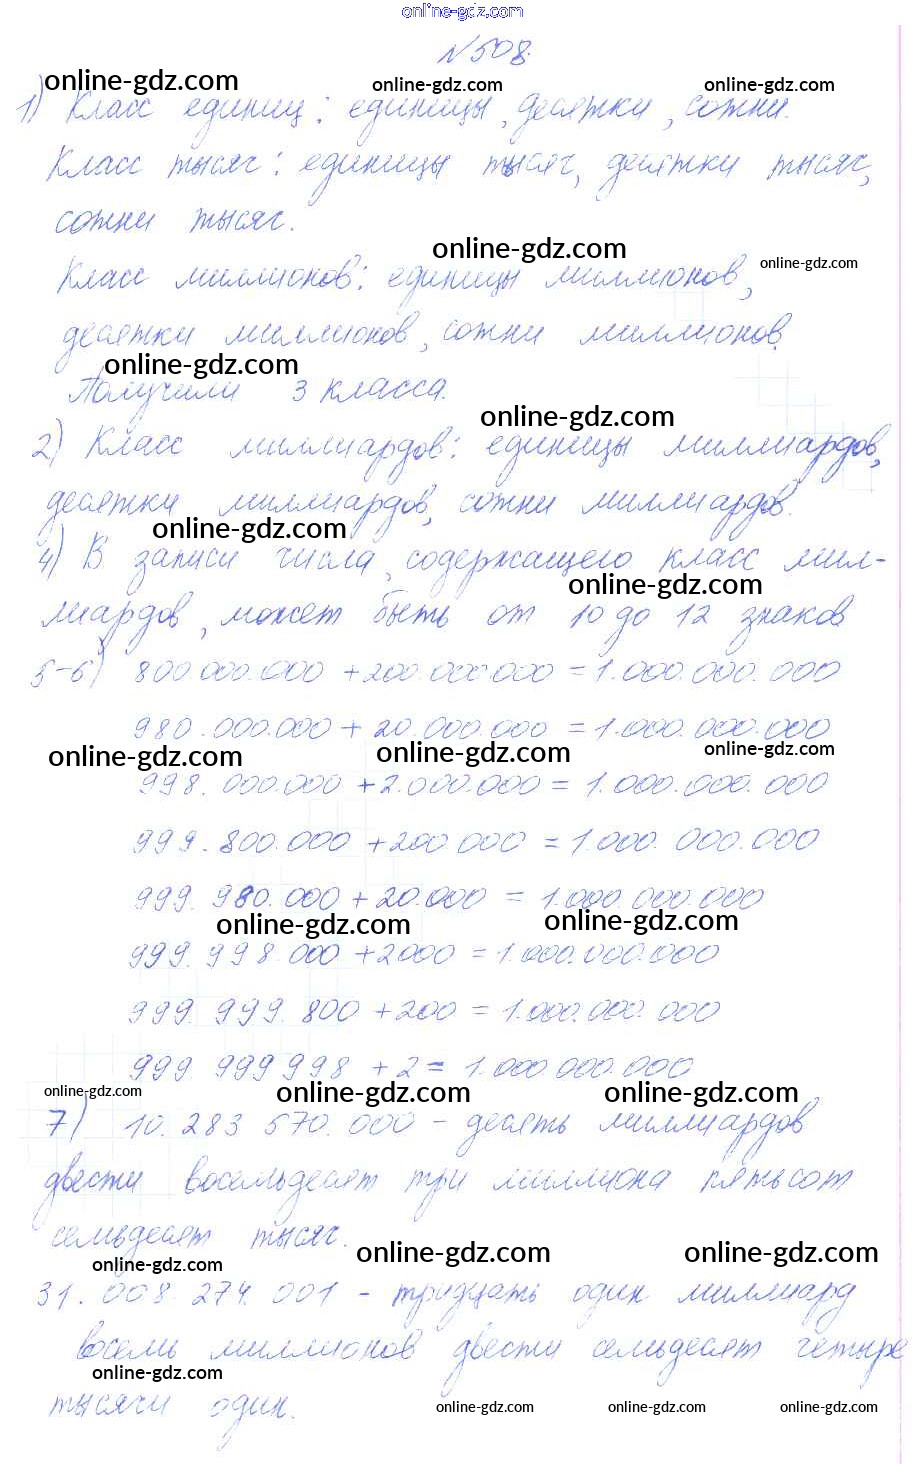 online-gdz.com
№508.
online-gdz.com online-gdz.com online-gdz.com
1) Класс единиц: единицы, десятки, сотни.
Класс тысяч: единицы тысяч, десятки тысяч,
сотни тысяч.
online-gdz.com online-gdz.com
Класс миллионов: единицы миллионов,
десятки миллионов, сотни миллионов.
online-gdz.com
Получили 3 класса.
online-gdz.com
2) Класс миллиардов: единицы миллиардов,
десятки миллиардов, сотни миллиардов.
online-gdz.com
4) В записи числа, содержащего класс мил-
online-gdz.com
лиардов, может быть от 10 до 12 знаков
5-6) 800 000.000 + 200.000 000 = 1.000.000.000
980.000.000 + 20.000.000 = 1.000.000.000
online-gdz.com online-gdz.com online-gdz.com
998.000.000 + 2.000.000 = 1.000.000.000
999.800.000 + 200 000 = 1.000.000.000
999.980.000 + 20.000 = 1.000.000.000
online-gdz.com online-gdz.com
999.998.000 + 2000 = 1.000.000.000
999.999.800 + 200 = 1.000.000.000
999.999 998 + 2 = 1.000 000.000
online-gdz.com online-gdz.com online-gdz.com
7) 10.283 570.000 - десять миллиардов
двести восемьдесят три миллиона пятьсот
семьдесят тысяч.
online-gdz.com online-gdz.com online-gdz.com
31.008.274.001 - тридцать один миллиард
восемь миллионов двести семьдесят четыре
online-gdz.com
тысячи один.
online-gdz.com online-gdz.com online-gdz.com